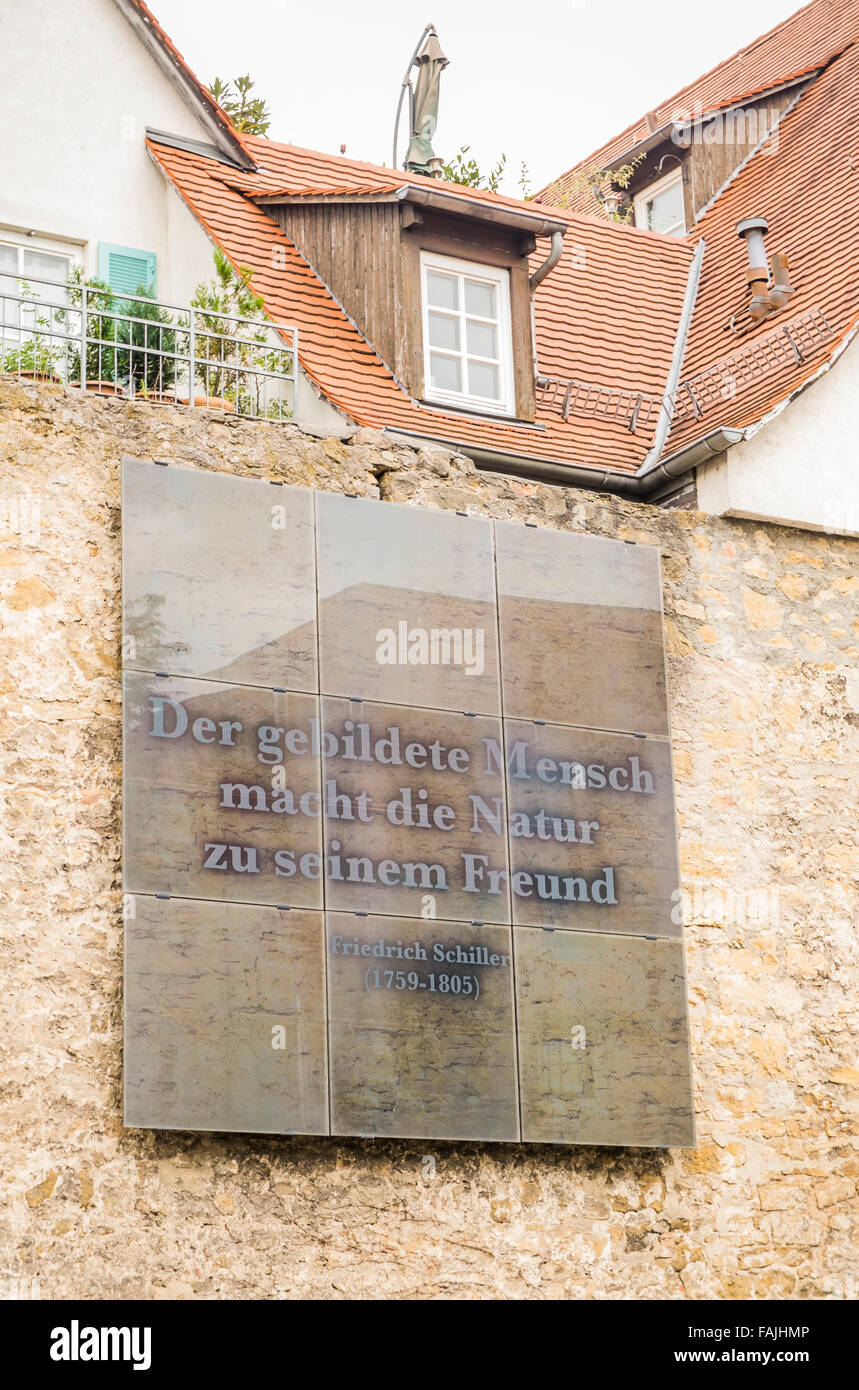 Der gebildete Mensch
macht die Natur
zu seinem Freund
Friedrich Schiller
(1759-1805)
alamy stock photo
FAJHMP
www.alamy.com